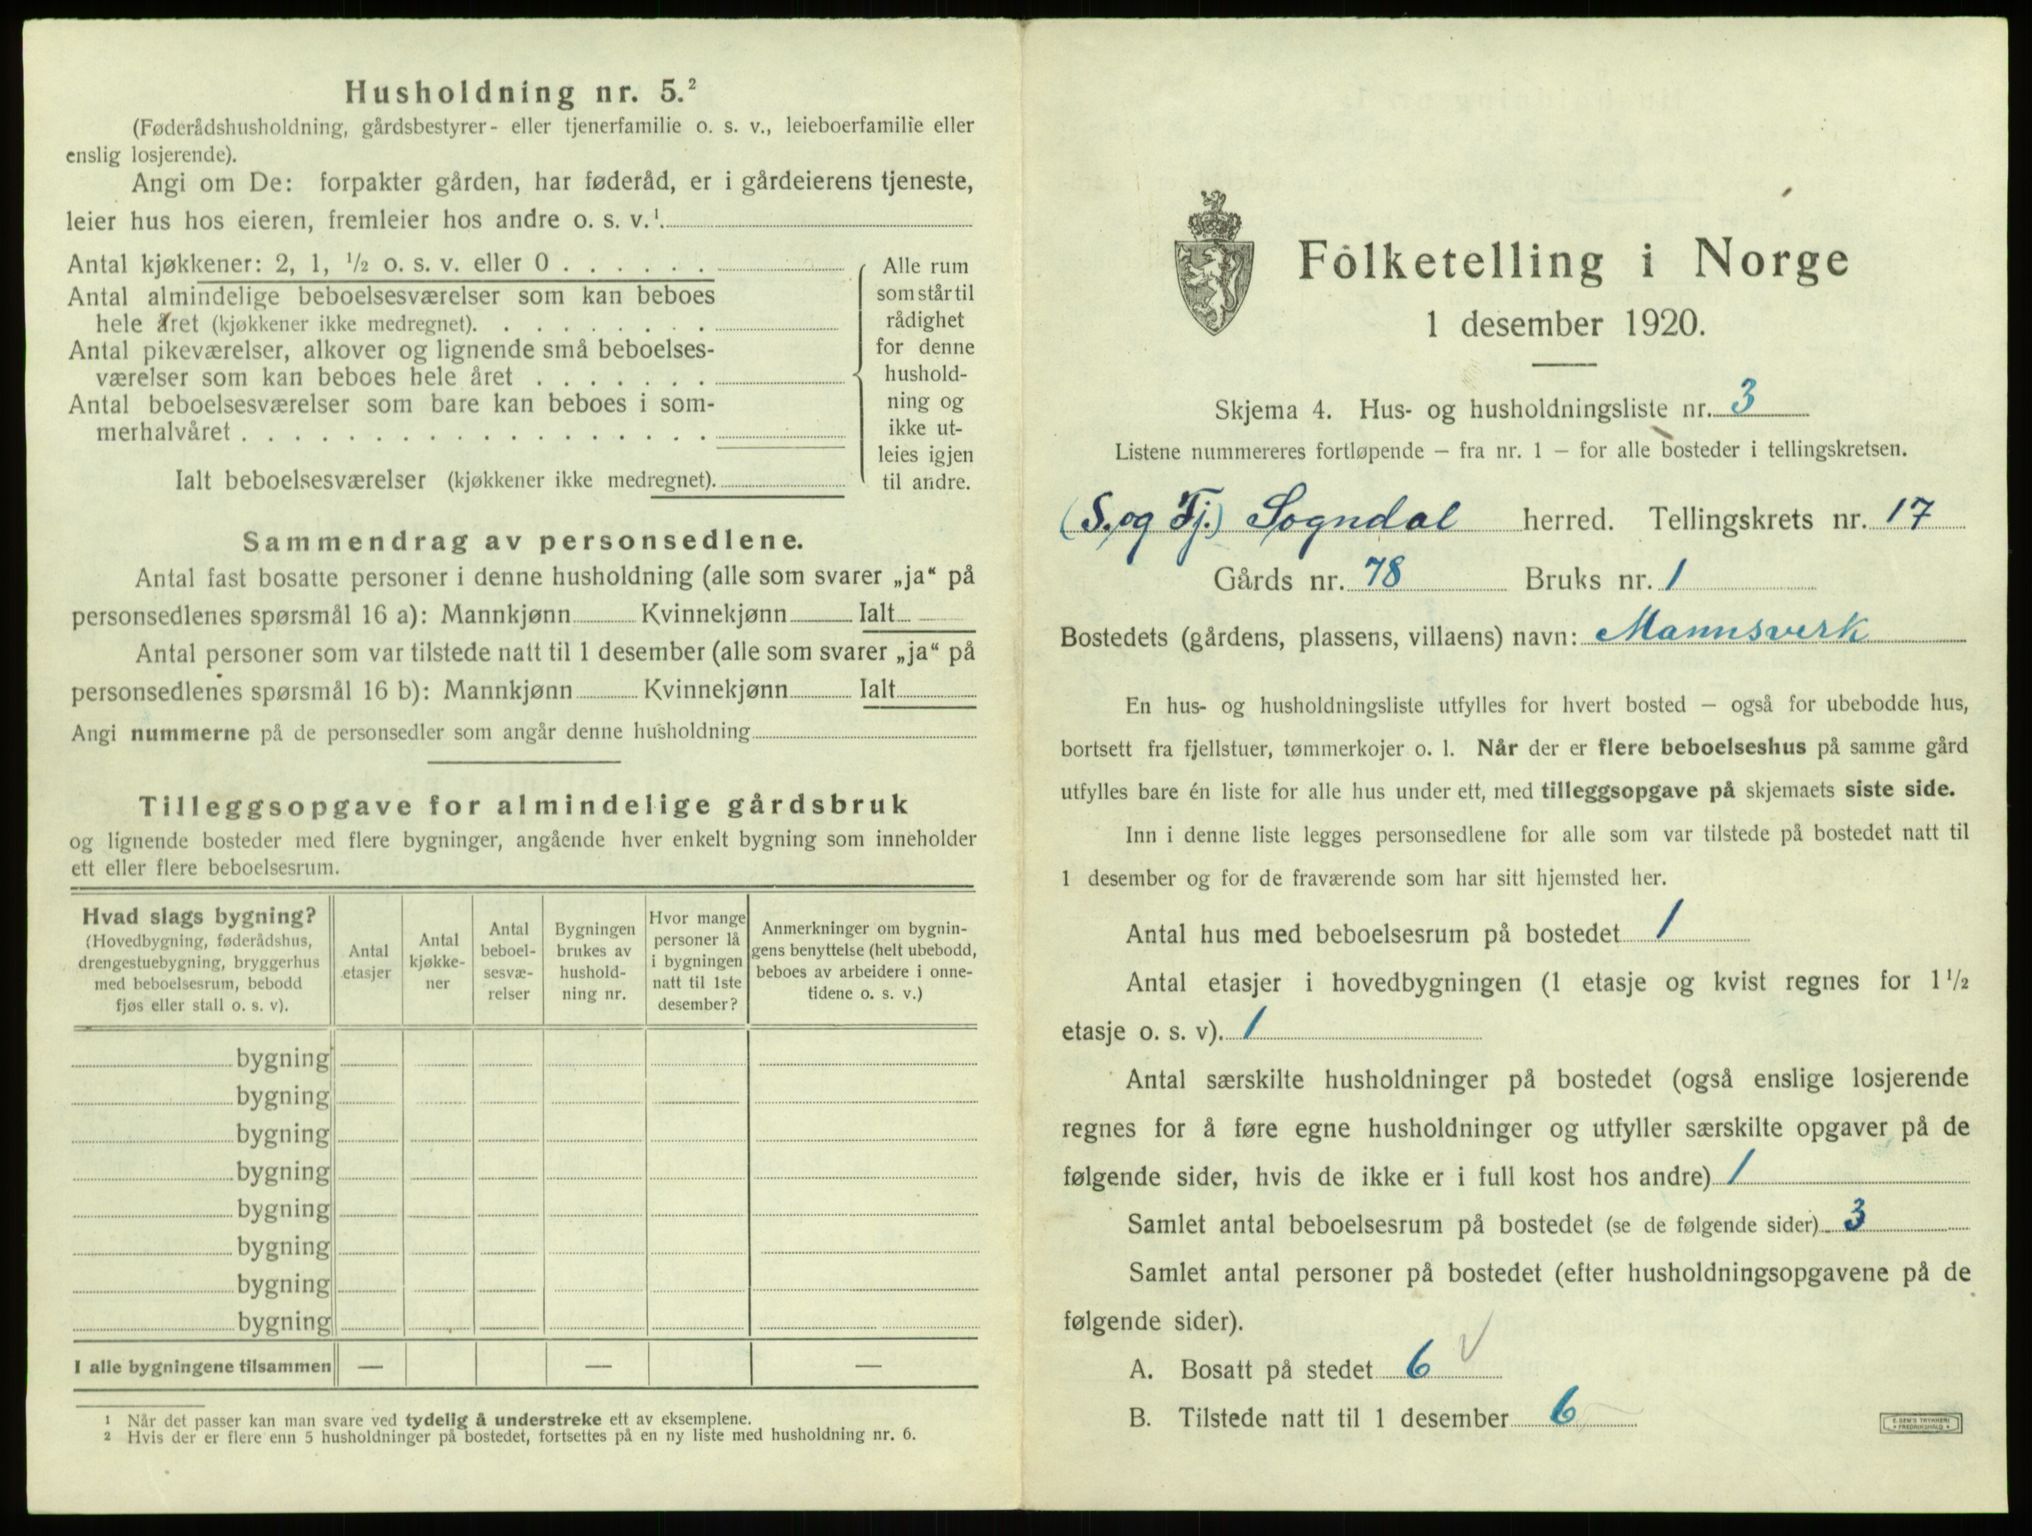 Husholdning nr. 5.²
(Føderådshusholdning, gårdsbestyrer- eller tjenerfamilie o. s. v., leieboerfamilie eller
enslig losjerende).
Angi om De: forpakter gården, har føderåd, er i gårdeierens tjeneste,
leier hus hos eieren, fremleier hos andre o. s. v.¹
Antal kjøkkener: 2, 1, ½ o. s. v. eller 0
Antal almindelige beboelsesværelser som kan beboes
hele året (kjøkkener ikke medregnet).
Antal pikeværelser, alkover og lignende små beboelses-
værelser som kan beboes hele året
Antal beboelsesværelser som bare kan beboes i som-
merhalvåret
Ialt beboelsesværelser (kjøkkener ikke medregnet).
Alle rum
som står til
rådighet
for denne
hushold-
ning og
ikke ut-
leies igjen
til andre.
Sammendrag av personsedlene.
Antal fast bosatte personer i denne husholdning (alle som svarer „ja“ på
personsedlenes spørsmål 16 a): Mannkjønn Kvinnekjønn Ialt
Antal personer som var tilstede natt til 1 desember (alle som svarer „ja“ på
personsedlenes spørsmål 16 b): Mannkjønn Kvinnekjønn Ialt
Angi nummerne på de personsedler som angår denne husholdning
Tilleggsopgave for almindelige gårdsbruk
og lignende bosteder med flere bygninger, angående hver enkelt bygning som inneholder
ett eller flere beboelsesrum.
Hvad slags bygning?
(Hovedbygning, føderådshus,
drengestuebygning, bryggerhus
med beboelsesrum, bebodd
fjøs eller stall o. s. v).
Antal
etasjer
Antal
kjøkke-
ner
Antal
beboel-
sesvæ-
relser
Bygningen
brukes av
hushold-
ning nr.
Hvor mange
personer lå
i bygningen
natt til 1ste
desember?
Anmerkninger om bygnin-
gens benyttelse (helt ubebodd,
beboes av arbeidere i onne-
tidene o. s. v.)
bygning
bygning
bygning
bygning
bygning
bygning
bygning
bygning
I alle bygningene tilsammen — — —
¹ Når det passer kan man svare ved tydelig å understreke ett av eksemplene.
² Hvis der er flere enn 5 husholdninger på bostedet, fortsettes på en ny liste med husholdning nr. 6.
Folketelling i Norge
1 desember 1920.
Skjema 4. Hus- og husholdningsliste nr. 3
Listene nummereres fortløpende — fra nr. 1 — for alle bosteder i tellingskretsen.
(S. og Fj.) Sogndal herred. Tellingskrets nr. 17
Gårds nr. 78 Bruks nr. 1
Bostedets (gårdens, plassens, villaens) navn: Mannsverk
En hus- og husholdningsliste utfylles for hvert bosted — også for ubebodde hus,
bortsett fra fjellstuer, tømmerkojer o. l. Når der er flere beboelseshus på samme gård
utfylles bare én liste for alle hus under ett, med tilleggsopgave på skjemaets siste side.
Inn i denne liste legges personsedlene for alle som var tilstede på bostedet natt til
1 desember og for de fraværende som har sitt hjemsted her.
Antal hus med beboelsesrum på bostedet 1
Antal etasjer i hovedbygningen (1 etasje og kvist regnes for 1½
etasje o. s. v). 1
Antal særskilte husholdninger på bostedet (også enslige losjerende
regnes for å føre egne husholdninger og utfyller særskilte opgaver på de
følgende sider, hvis de ikke er i full kost hos andre) 1
Samlet antal beboelsesrum på bostedet (se de følgende sider) 3
Samlet antal personer på bostedet (efter husholdningsopgavene på de
følgende sider).
A. Bosatt på stedet 6 ✓
B. Tilstede natt til 1 desember 6
E. SEM'S TRYKKERI
FREDRIKSHALD